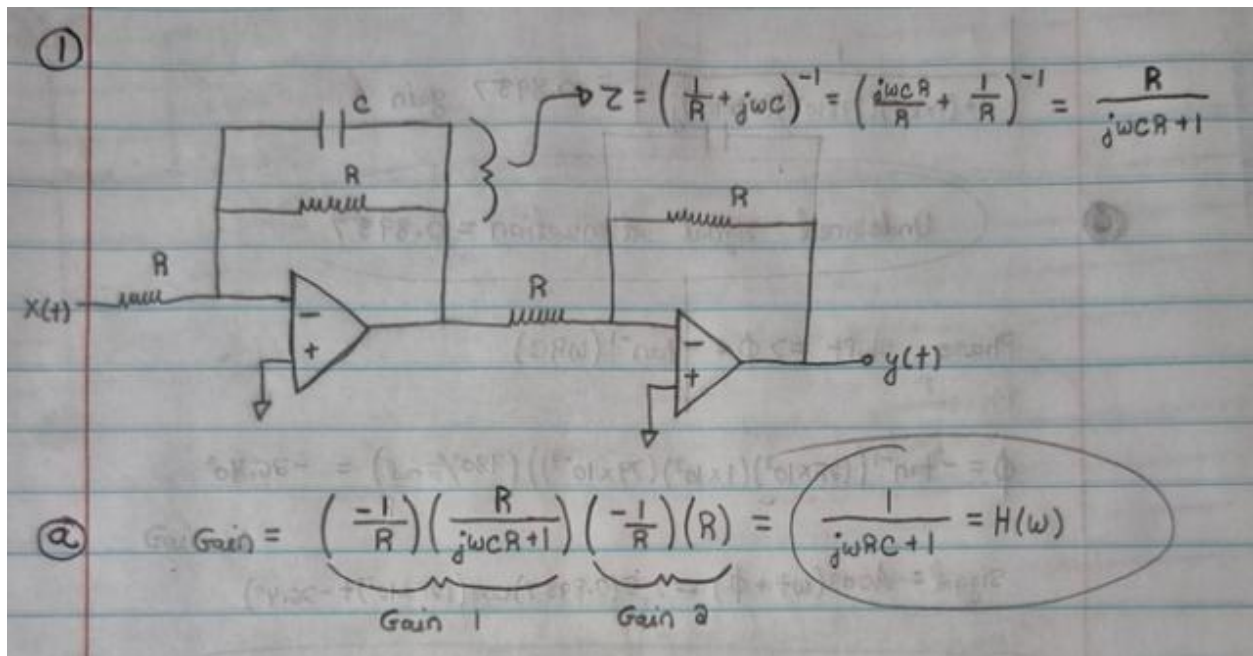 ①
Z = ( 1/R + jωC )⁻¹ = ( jωCR/R + 1/R )⁻¹ = R/(jωCR+1)
C
R
R
R
R
X(t)
−
+
−
+
y(t)
ⓐ Gain = ( −1/R )( R/(jωCR+1) )( −1/R )(R) = 1/(jωRC+1) = H(ω)
Gain 1 Gain 2